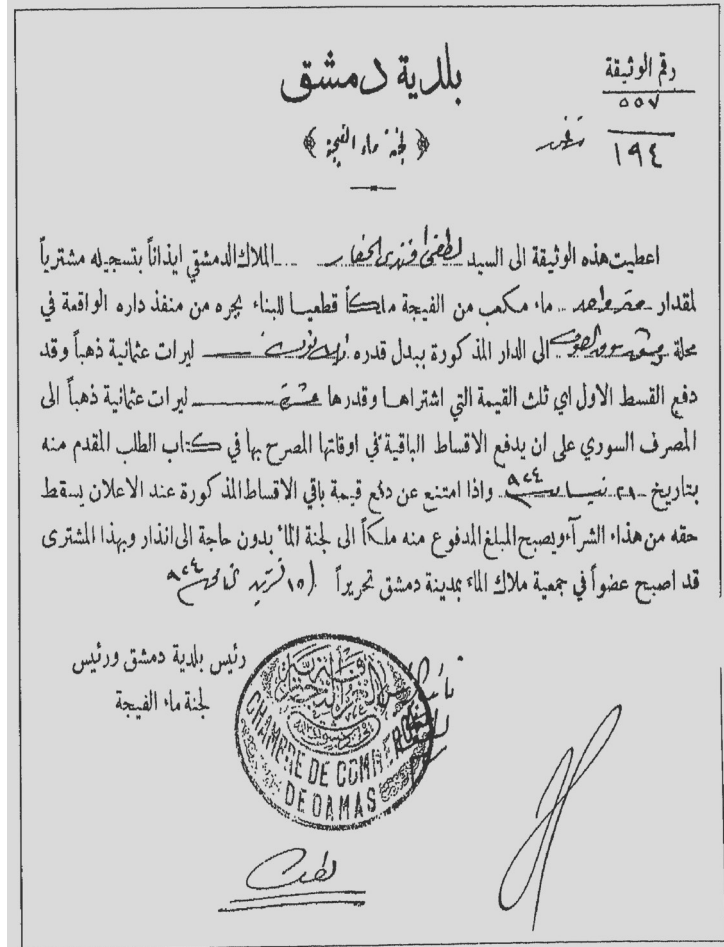 بلدية دمشق
رقم الوثيقة
٥٥٧
﴿ لجنة ماء الفيجة ﴾
١٩٤
اعطيت هذه الوثيقة الى السيد لطفي افندي الحفار الملاك الدمشقي ايذاناً بتسجيله مشترياً
لمقدار متر واحد ماء مكعب من الفيجة ملكاً قطعيا للبناء يجره من منفذ داره الواقعة في
محلة الى الدار المذكورة ببدل قدره ليرات عثمانية ذهباً وقد
دفع القسط الاول اي ثلث القيمة التي اشتراها وقدرها عشرة ليرات عثمانية ذهباً الى
المصرف السوري على ان يدفع الاقساط الباقية في اوقاتها المصرح بها في كتاب الطلب المقدم منه
بتاريخ نيسان ٩٢٤ واذا امتنع عن دفع قيمة باقي الاقساط المذكورة عند الاعلان يسقط
حقه من هذا الشرآء ويصبح المبلغ المدفوع منه ملكاً الى لجنة الماء بدون حاجة الى انذار وبهذا المشترى
قد اصبح عضواً في جمعية ملاك الماء بمدينة دمشق تحريراً ١٥ تشرين ٩٢٤
رئيس بلدية دمشق ورئيس
لجنة ماء الفيجة
CHAMBRE DE COMMERCE
DE DAMAS